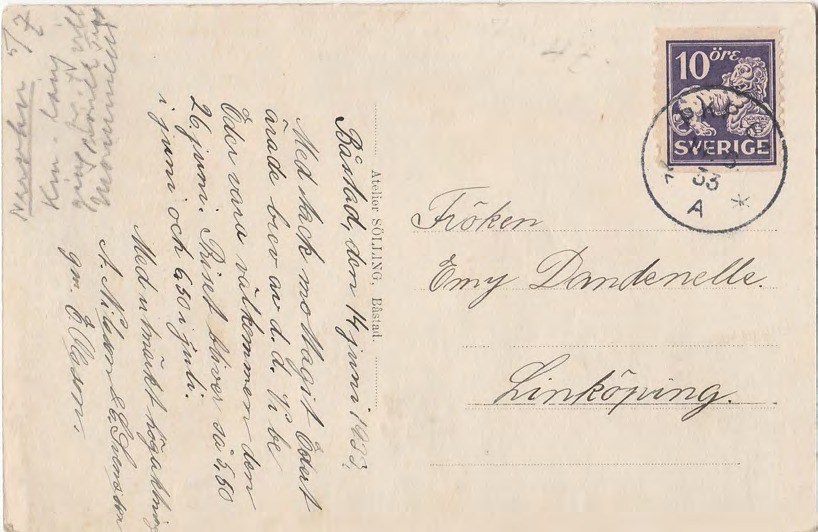 Båstad, den 14 juni 1933.
Med tack mottagit Edert
ärade brev av d. d. Vi be
Eder vara välkommen den
26 juni. Priset bliver så 5,50
i juni och 6,50 i juli.
Med utmärkt högaktning
A. Nilsson & E. Svensson
gm. E. Olsson.
5/7
Km. lång
Atelier SÖLLING, Båstad.
10 öre
SVERIGE
33
A
Fröken
Emy Dandenelle.
Linköping.